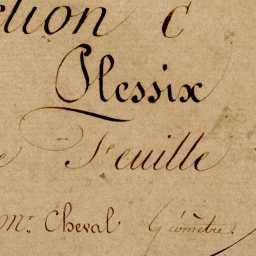 ction C
Plessix
e Feuille
Mr. Cheval Géomètre.